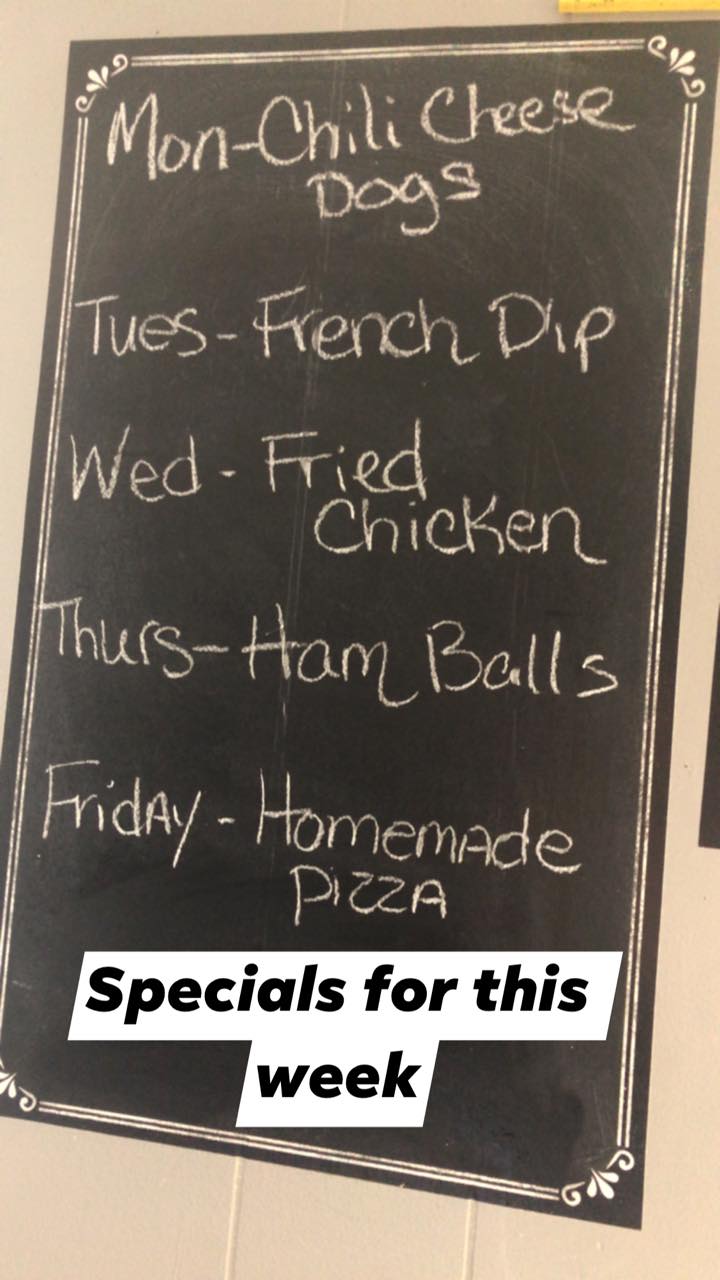 Mon-Chili Cheese
Dogs
Tues-French Dip
Wed - Fried
Chicken
Thurs-Ham Balls
Friday - Homemade
Pizza
Specials for this
week